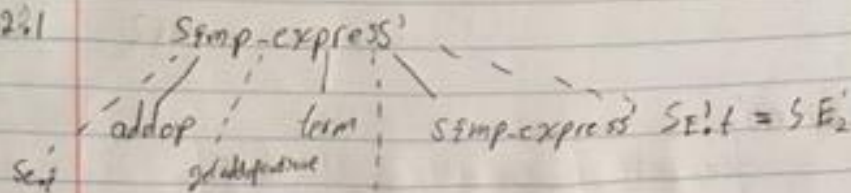 2.1 Simp-express'
addop term Simp-express' SE'.t = SE'2